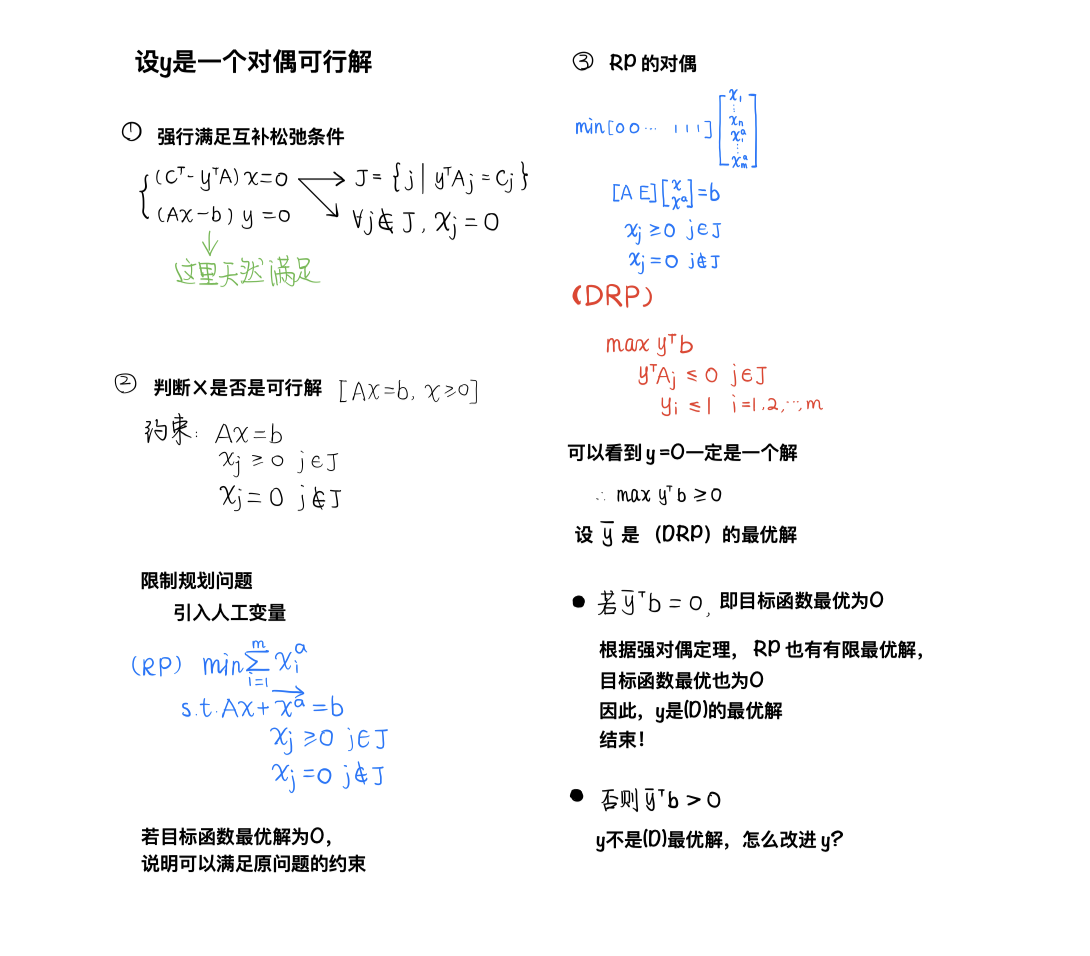 设y是一个对偶可行解
① 强行满足互补松弛条件
(Cᵀ-yᵀA)x=0 → J={j|yᵀAⱼ=Cⱼ}
(Ax-b)y=0 ∀j∉J, xⱼ=0
这里天然满足
② 判断X是否是可行解 [Ax=b, x≥0]
约束: Ax=b
xⱼ≥0 j∈J
xⱼ=0 j∉J
限制规划问题
引入人工变量
(RP) min∑ᵢ₌₁ᵐ xᵢᵃ
s.t. Ax+xᵃ=b
xⱼ≥0 j∈J
xⱼ=0 j∉J
若目标函数最优解为0,
说明可以满足原问题的约束
③ RP的对偶
min[0 0 ⋯ 1 1 1][x₁ ⋮ xₙ x₁ᵃ ⋮ xₘᵃ]
[A E][x xᵃ]=b
xⱼ≥0 j∈J
xⱼ=0 j∉J
(DRP)
max yᵀb
yᵀAⱼ≤0 j∈J
yᵢ≤1 i=1,2,⋯,m
可以看到y=0一定是一个解
∴ max yᵀb≥0
设 ȳ 是 (DRP) 的最优解
● 若ȳᵀb=0, 即目标函数最优为0
根据强对偶定理, RP也有有限最优解,
目标函数最优也为0
因此, y是(D)的最优解
结束!
● 否则ȳᵀb>0
y不是(D)最优解, 怎么改进y?